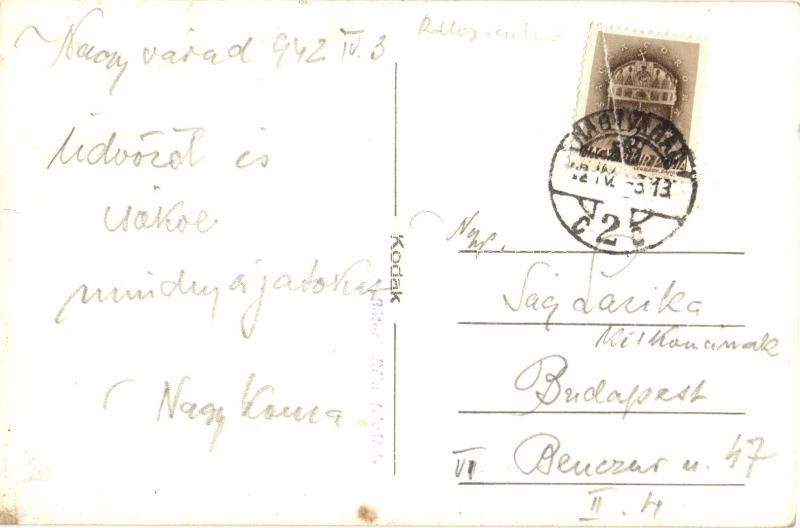 Nagyvárad 942 IV. 3
Üdvözöl és
csókol
mindnyájatokat
Nagy Koma
Kodak
NAGYVÁRAD
42 IV. -3 13
C 2 C
Ság Larika
kiskomámnak
Budapest
VI Benczur u. 47
II. 4
20